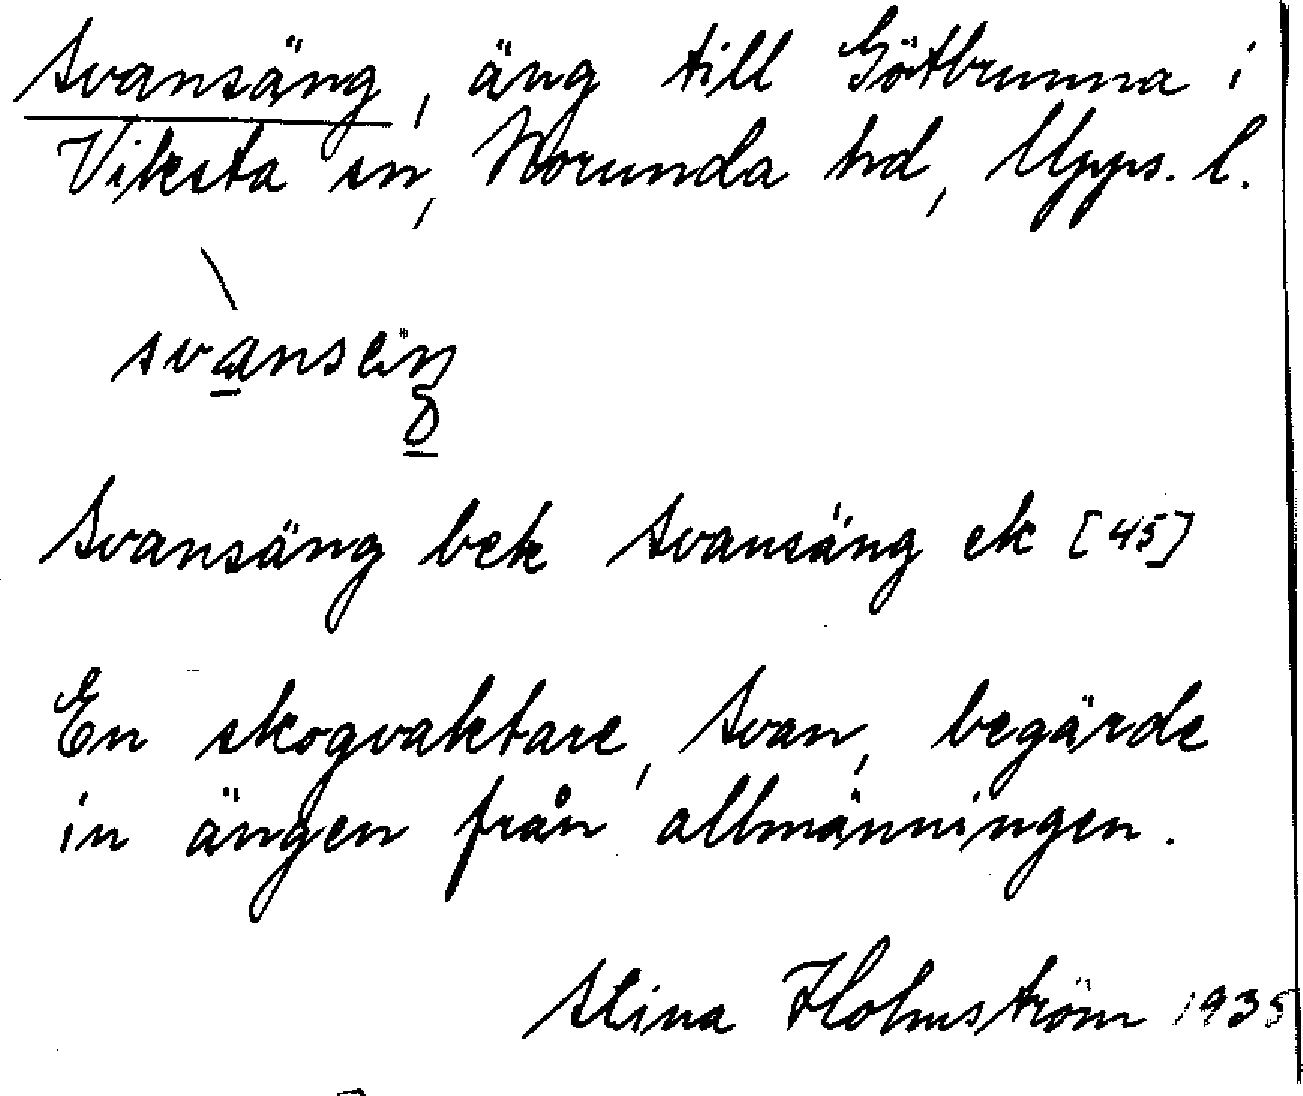 Svansäng, äng till Götbrunna i
Viksta sn, Norunda hd, Upps. l.
Svansäng bek Svansäng ek [45]
En skogvaktare, Svan, begärde
in ängen från allmänningen.
Stina Holmström 1935